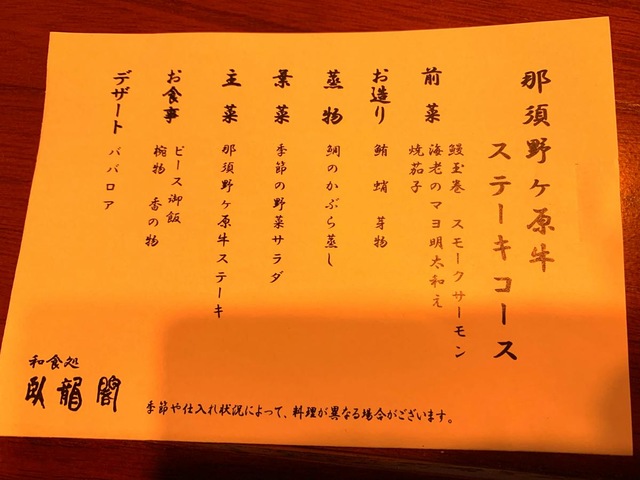 那須野ヶ原牛
ステーキコース
前菜
鰻玉巻 スモークサーモン
海老のマヨ明太和え
焼茄子
お造り
鮪 蛸 芽物
蒸物
鯛のかぶら蒸し
葉菜
季節の野菜サラダ
主菜
那須野ヶ原牛ステーキ
お食事
ピース御飯
椀物 香の物
デザート
ババロア
和食処
臥龍閣
季節や仕入れ状況によって、料理が異なる場合がございます。